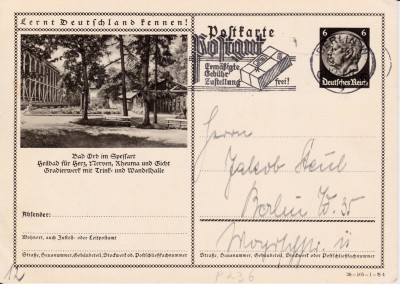 Lernt Deutschland kennen!
Bad Orb im Spessart
Heilbad für Herz, Nerven, Rheuma und Gicht
Gradierwerk mit Trink- und Wandelhalle
Absender:
Wohnort, auch Zustell- oder Leitpostamt
Straße, Hausnummer, Gebäudeteil, Stockwerk od. Postschließfachnummer
12
Postkarte
Postgut
Ermäßigte
Gebühr
Zustellung frei!
6 6
Deutsches Reich
Herrn
Jakob
Berlin W. 35
Straße, Hausnummer, Gebäudeteil, Stockwerk oder Postschließfachnummer
P 236